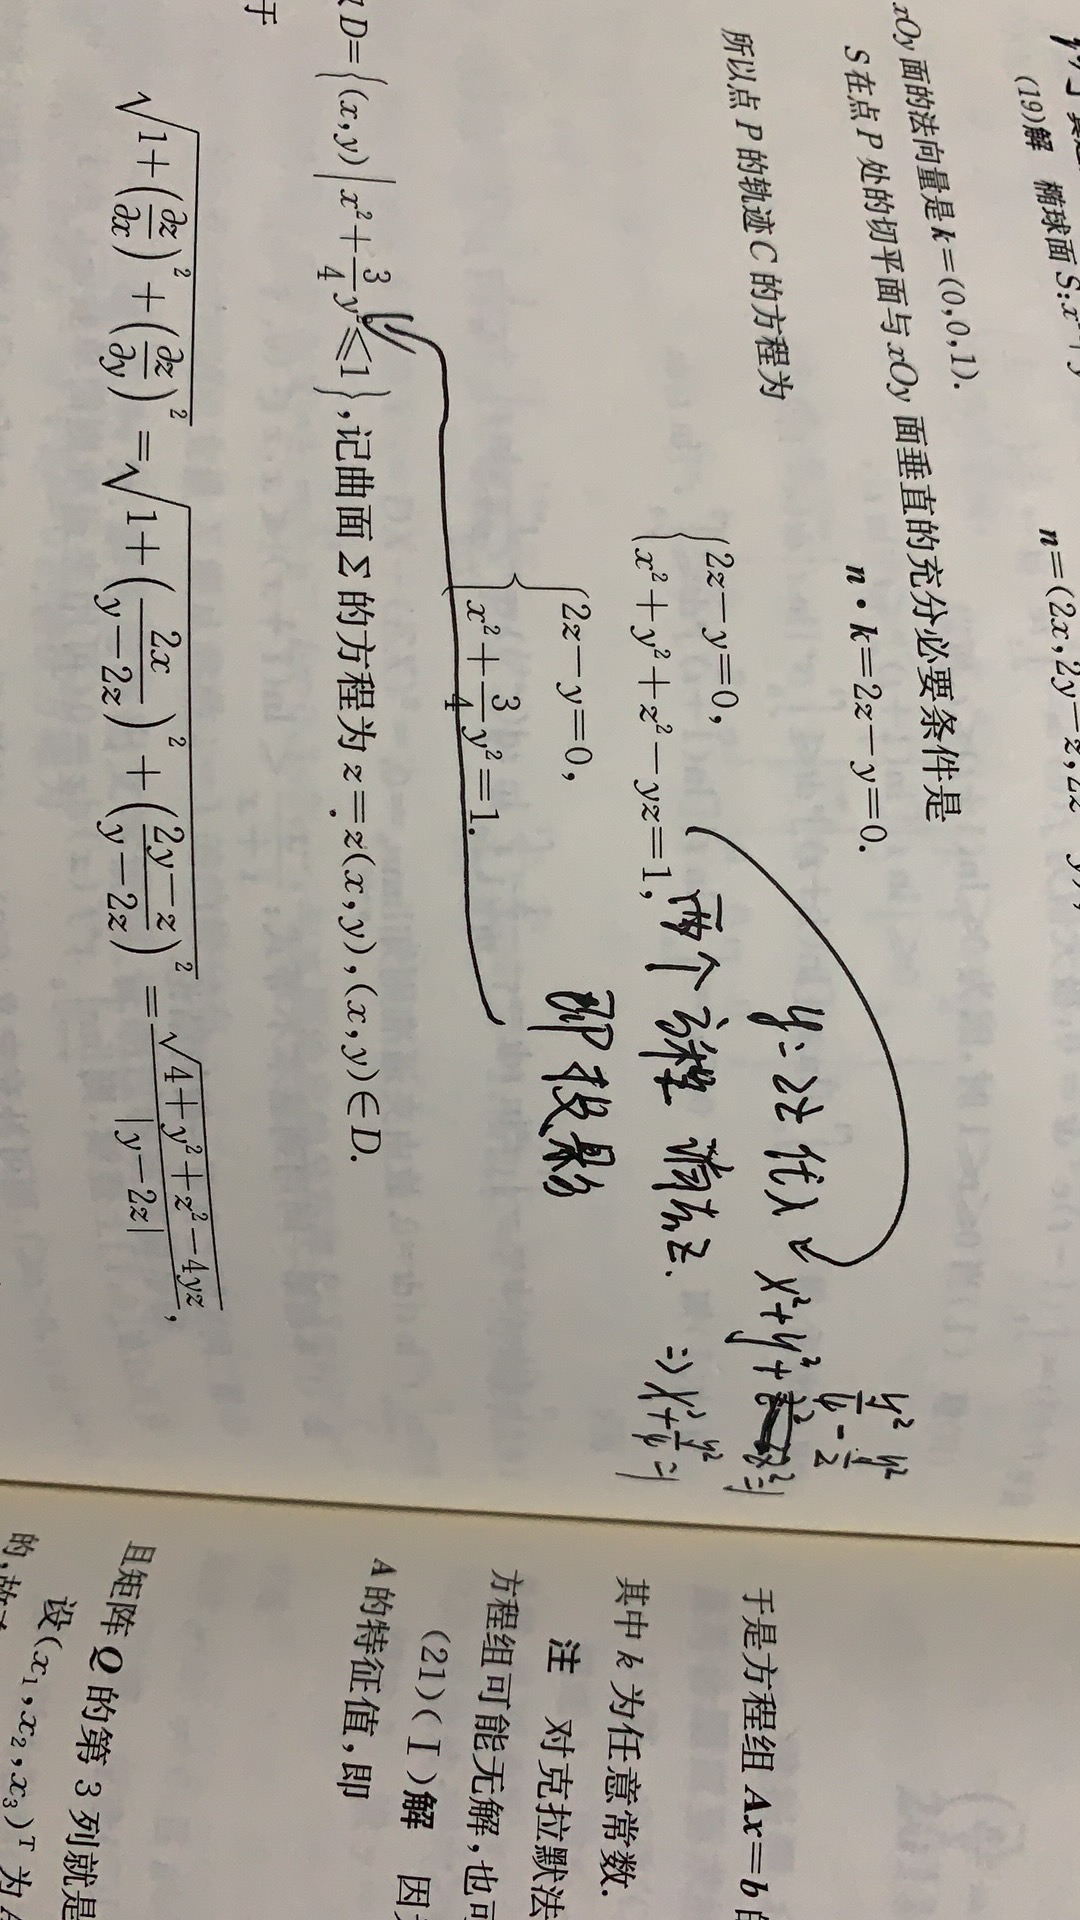 (19)解 椭球面 S:x²+y
n=(2x,2y-z,2z-y),
xOy 面的法向量是 k=(0,0,1).
S 在点 P 处的切平面与 xOy 面垂直的充分必要条件是
n·k=2z-y=0.
所以点 P 的轨迹 C 的方程为
{2z-y=0,
x²+y²+z²-yz=1,
y=2z 代入 x²+y²+y²/4-y²/2=1
两个方程 消去z. => x²+
即投影
{2z-y=0,
x²+3/4y²=1.
D={(x,y)|x²+3/4y²≤1},记曲面 Σ 的方程为 z=z(x,y),(x,y)∈D.
于
√(1+(∂z/∂x)²+(∂z/∂y)²)=√(1+(2x/(y-2z))²+((2y-z)/(y-2z))²)=√(4+y²+z²-4yz)/|y-2z|,
于是方程组 Ax=b
其中 k 为任意常数.
注 对克拉默法
方程组可能无解,也可
(21)(Ⅰ)解 因
A 的特征值,即
且矩阵 Q 的第 3 列就是
设(x₁,x₂,x₃)ᵀ 为
的,故